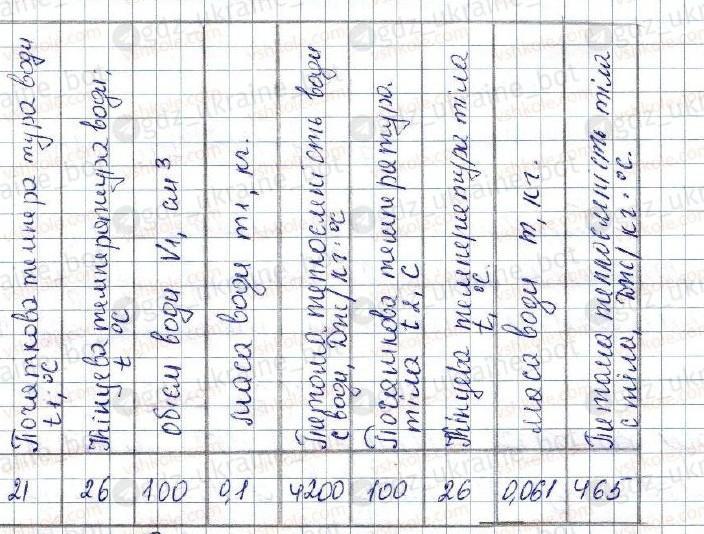 Початкова температура води
t1, °C
Кінцева температура води,
t °C
об'єм води V1, см³
маса води m1, кг.
Питома теплоємність води
с води, Дж/кг·°C
Початкова температура
тіла t2, C
Кінцева температура тіла
t, °C.
маса води m, кг.
Питома теплоємність тіла
с тіла, Дж/кг·°C.
21 26 100 0,1 4200 100 26 0,061 465
gdz_ukraine_bot
vshkole.com